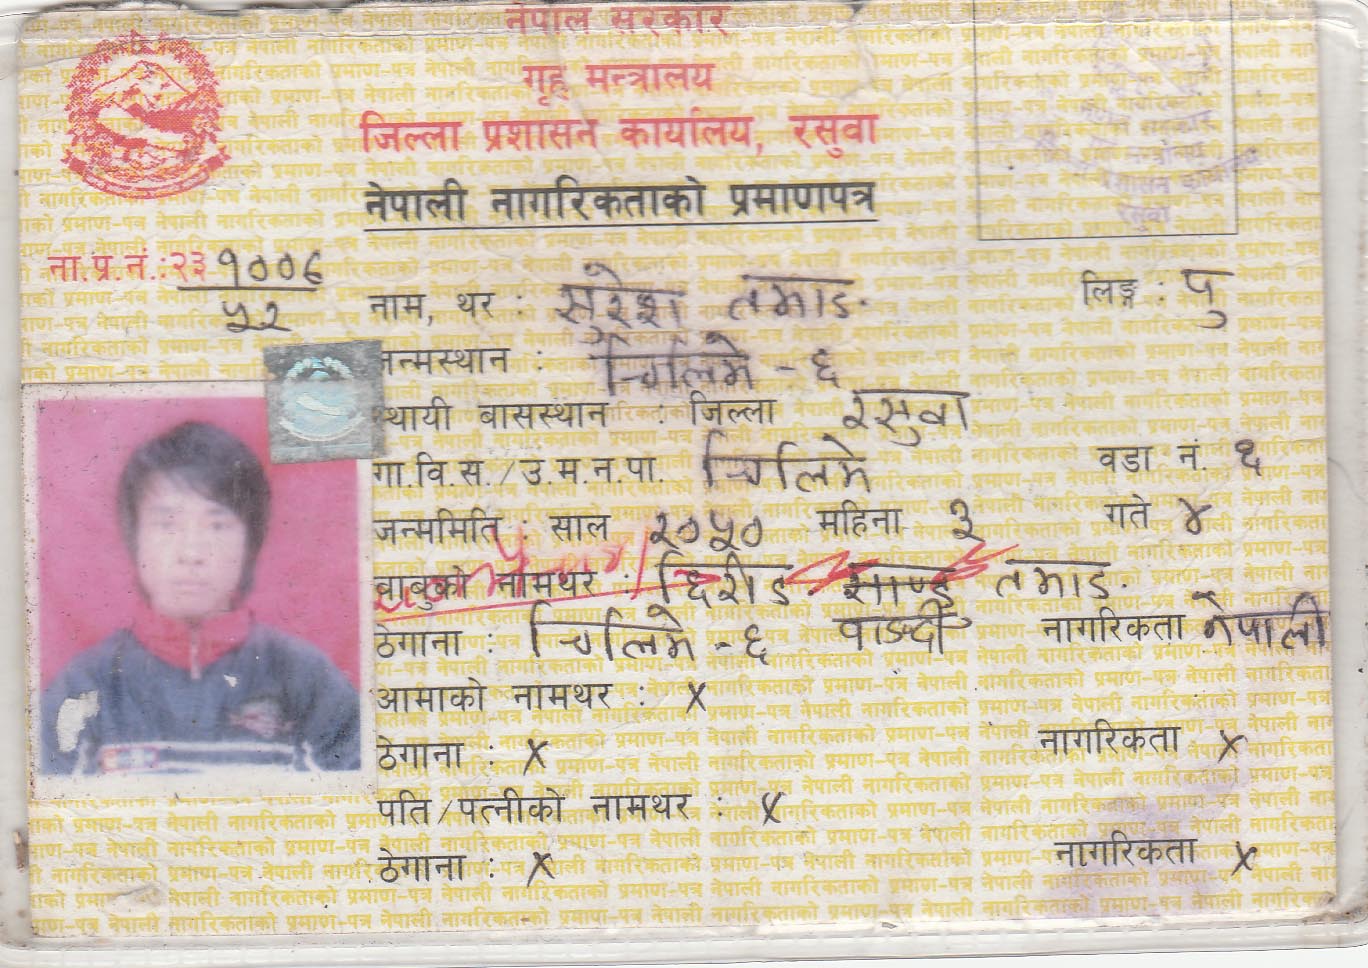 नेपाल सरकार
गृह मन्त्रालय
जिल्ला प्रशासन कार्यालय, रसुवा
नेपाली नागरिकताको प्रमाणपत्र
प्रशासन कार्यालय
रसुवा
ना.प्र.नं.:२३ १००६
५२
नाम, थर : सुरेश तमाङ. लिङ्ग : पु
जन्मस्थान : चिलिमे - ६
स्थायी बासस्थान : जिल्ला रसुवा
गा.वि.स./उ.म.न.पा. चिलिमे वडा नं. ६
जन्ममिति : साल २०५० महिना ३ गते ४
बाबुको नामथर : तमाङ.
ठेगाना : चिलिमे - ६ नागरिकता नेपाली
आमाको नामथर : x
ठेगाना : x नागरिकता x
पति/पत्नीको नामथर : x
ठेगाना : x नागरिकता x